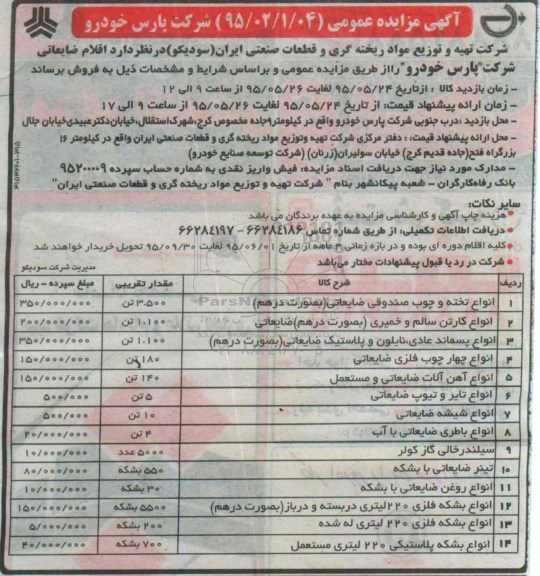 آگهی مزایده عمومی (۹۵/۰۲/۱/۰۴) شرکت پارس خودرو
شرکت تهیه و توزیع مواد ریخته گری و قطعات صنعتی ایران(سودیکو)درنظردارد اقلام ضایعاتی
شرکت"پارس خودرو"رااز طریق مزایده عمومی و براساس شرایط و مشخصات ذیل به فروش برساند
- زمان بازدید کالا : ازتاریخ ۹۵/۰۵/۲۴ لغایت ۹۵/۰۵/۲۶ از ساعت ۹ الی ۱۲
- زمان ارائه پیشنهاد قیمت: از تاریخ ۹۵/۰۵/۲۴ لغایت ۹۵/۰۵/۲۶ از ساعت ۹ الی ۱۷
- محل بازدید :درب جنوبی شرکت پارس خودرو واقع در کیلومتر۹جاده مخصوص کرج،شهرک استقلال،خیابان دکترعبیدی خیابان جلال
- محل ارائه پیشنهاد قیمت: دفتر مرکزی شرکت تهیه وتوزیع مواد ریخته گری و قطعات صنعتی ایران واقع در کیلومتر ۱۶
بزرگراه فتح(جاده قدیم کرج) خیابان سولیران(زرنان) (شرکت توسعه صنایع خودرو)
- مدارک مورد نیاز جهت دریافت اسناد مزایده: فیش واریز نقدی به شماره حساب سپرده ۹۵۲۰۰۰۰۹
بانک رفاه کارگران - شعبه پیکانشهر بنام " شرکت تهیه و توزیع مواد ریخته گری و قطعات صنعتی ایران"
سایر نکات:
هزینه چاپ آگهی و کارشناسی مزایده به عهده برندگان می باشد
دریافت اطلاعات تکمیلی: از طریق شماره تماس ۶۶۲۸۴۱۸۶ - ۶۶۲۸۴۱۹۷
کلیه اقلام دوره ای بوده و در بازه زمانی ۴ ماهه از تاریخ ۹۵/۰۶/۰۱ لغایت ۹۵/۰۹/۳۰ تحویل خریدار خواهند شد
شرکت در رد یا قبول پیشنهادات مختار می باشد
مدیریت شرکت سودیکو
ردیف شرح کالا مقدار تقریبی مبلغ سپرده - ریال
۱ انواع تخته و چوب صندوقی ضایعاتی(بصورت درهم) ۳.۵۰۰ تن ۳۵۰/۰۰۰/۰۰۰
۲ انواع کارتن سالم و خمیری (بصورت درهم)ضایعاتی ۱.۱۰۰ تن ۲۰۰/۰۰۰/۰۰۰
۳ انواع پسماند عادی،نایلون و پلاستیک ضایعاتی(بصورت درهم) ۱.۱۰۰ تن ۳۵۰/۰۰۰/۰۰۰
۴ انواع چهار چوب فلزی ضایعاتی ۱۸۰ تن ۱۵۰/۰۰۰/۰۰۰
۵ انواع آهن آلات ضایعاتی و مستعمل ۱۴۰ تن ۱۵۰/۰۰۰/۰۰۰
۶ انواع تایر و تیوپ ضایعاتی ۵ تن ۵۰۰/۰۰۰
۷ انواع شیشه ضایعاتی ۱۰ تن ۵۰۰/۰۰۰
۸ انواع باطری ضایعاتی با آب ۴ تن ۲۰/۰۰۰/۰۰۰
۹ سیلندرخالی گاز کولر ۵۰۰۰ عدد ۱۰/۰۰۰/۰۰۰
۱۰ تینر ضایعاتی با بشکه ۵۵۰ بشکه ۸۰/۰۰۰/۰۰۰
۱۱ انواع روغن ضایعاتی با بشکه ۳۰ بشکه ۱۰/۰۰۰/۰۰۰
۱۲ انواع بشکه فلزی ۲۲۰لیتری دربسته و درباز(بصورت درهم) ۵۵۰۰ بشکه ۱۵۰/۰۰۰/۰۰۰
۱۳ انواع بشکه فلزی ۲۲۰ لیتری له شده ۲۰۰ بشکه ۵/۰۰۰/۰۰۰
۱۴ انواع بشکه پلاستیکی ۲۲۰ لیتری مستعمل ۷۰۰ بشکه ۴۰/۰۰۰/۰۰۰